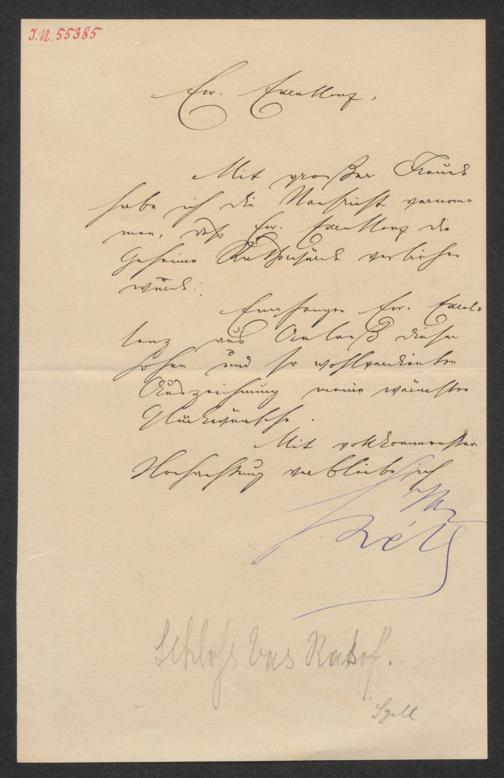 J.N. 55385
Ew. Excellenz,
Mit großer Freude
habe ich die Nachricht vernom-
men, daß Ew. Excellenz die
Geheime Rathswürde verliehen
wurde.
Empfangen Ew. Excel-
lenz aus Anlaß dieser
hohen und so wohlverdienten
Auszeichnung meine wärmsten
Glückwünsche.
Mit vollkommenster
Hochachtung verbleibe ich
Ihr
Széll
Schloss Vas Ratof.
Szell